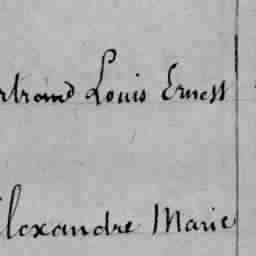 ertrand Louis Ernest
lexandre Marie